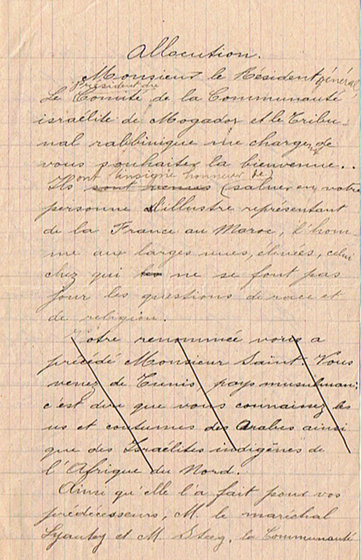 Allocution.
Monsieur le Résident général
Président du
Le Comité de la Communauté
israélite de Mogador et le Tribu-
nal rabbinique me charge de
vous souhaiter la bienvenue..
ont l'insigne honneur de
Ils sont (saluer en votre
personne l'illustre représentant
de la France au Maroc, l'hom
me aux larges vues, élevées, celui
chez qui ne se font pas
jour les questions de race et
de religion.
Votre renommée vous a
précédé Monsieur Saint. Vous
venez de Tunis, pays musulman;
c'est dire que vous connaissez les
us et coutumes des Arabes ainsi
que des Israélites indigènes de
l'Afrique du Nord.
Ainsi qu'elle l'a fait pour vos
prédécesseurs, M. le maréchal
Lyautey et M. Steeg, la Communauté